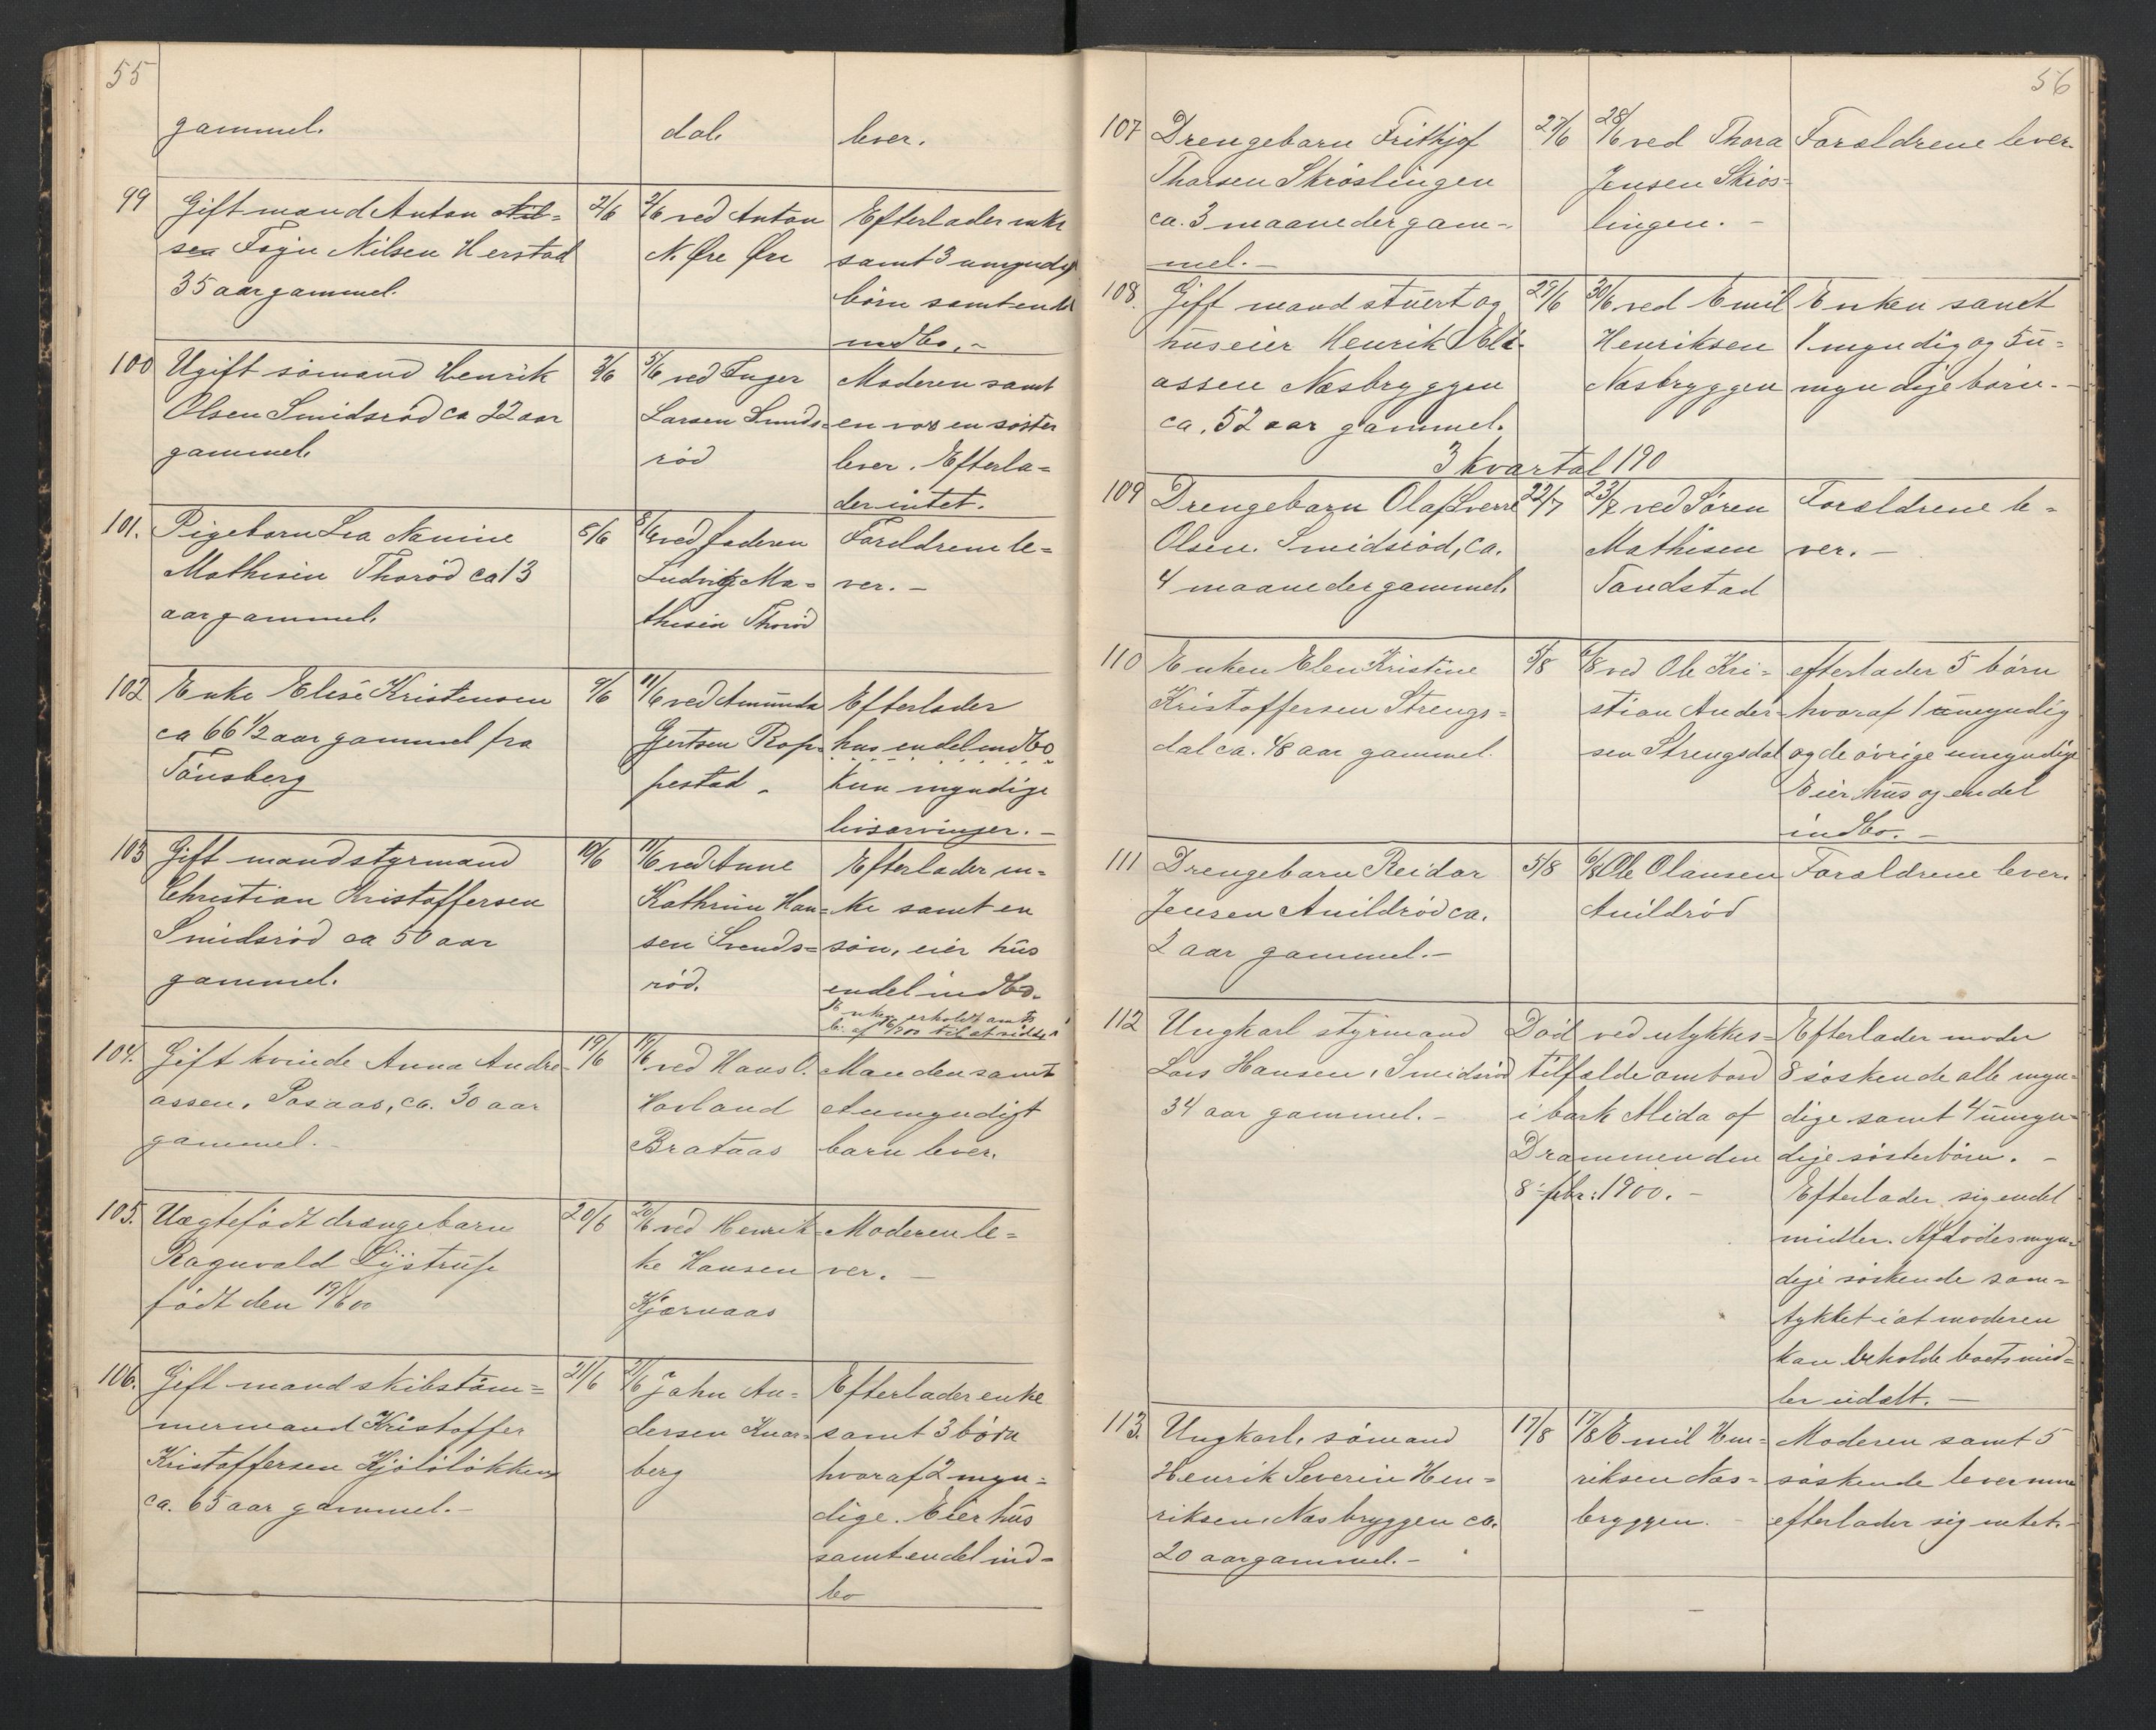 55
gammel.
dal.
lever.
99
Gift mand Anton Nil=
sen Fojn Nilsen Herstad
35 aar gammel.
2/6
2/6 ved Anton
N. Øre Øre
Efterlader enke
samt 3 umyndig
børn samt endel
indbo. -
100
Ugift sömand Henrik
Olsen Smidsröd ca 22 aar
gammel.
3/6
5/6 ved Inger
Larsen Smids=
röd
Moderen samt
en söster
lever. Efterla=
der intet.
101.
Pigebarn Lea Namine
Mathisen Thoröd ca 13
aar gammel.
8/6
8/6 ved faderen
Ludvig Ma=
thisen Thoröd
Foreldrene le=
ver. -
102
Enke Elise Kristensen
ca 66 1/2 aar gammel fra
Tönsberg
9/6
11/6 ved Amunda
Gjertsen Rop=
pestad.
Efterlader
hus endel indbo
kun myndige
livsarvinger. -
103
Gift mand styrmand
Christian Kristoffersen
Smidsröd ca 50 aar
gammel.
10/6
11/6 ved Anne
Kathrine Han=
sen Svends=
röd.
Efterlader en=
ke samt en
sön, eier hus
endel indbo.
Enken erholdt
104.
Gift kvinde Anna Andre=
assen, Rosaas, ca. 30 aar
gammel. -
19/6
19/6 ved Hans O.
Havland
Brataas
Manden samt
et umyndigt
barn lever.
105.
Uægtefödt drængebarn
Ragnvald Lystrup
födt den 19/6 00
20/6
20/6 ved Henrik=
ke Hansen
Kjærnaas
Moderen le=
ver. -
106.
Gift mand skibstöm=
mermand Kristoffer
Kristoffersen Kjölölökken
ca. 65 aar gammel. -
21/6
21/6 John An=
dersen Knar=
berg
Efterlader enke
samt 3 börn
hvoraf 2 myn=
dige. Eier hus
samt endel ind=
bo
56
107
Drengebarn Frithjof
Thorsen Skröslingen
ca. 3 maaneder gam=
mel. -
27/6
28/6 ved Thora
Jensen Skrös=
lingen. -
Forældrene lever.
108.
Gift mand stuert og
huseier Henrik Eli=
assen Næsbryggen
ca. 52 aar gammel.
29/6
30/6 ved Emil
Henriksen
Næsbryggen
Enken samt
1 myndig og 5 u=
myndige börn. -
3 Kvartal 190
109
Drengebarn Olaf Sverre
Olsen. Smidsröd, ca.
4 maaneder gammel.
22/7
23/7 ved Sören
Mathisen
Tandstad
Forældrene le=
ver. -
110
Enken Elen Kristine
Kristoffersen Strengs=
dal ca. 48 aar gammel.
5/8
6/8 ved Ole Kri=
stian Ander=
sen Strengsdal
efterlader 5 börn
hvoraf 1 umyndig
og de övrige umyndige
Eier hus og endel
indbo. -
111
Drengebarn Reidar
Jensen Anildröd ca.
2 aar gammel. -
5/8
6/8 Ole Olausen
Anildröd
Forældrene lever.
112
Ungkarl styrmand
Lars Hansen, Smidsröd
34 aar gammel. -
Död ved ulykkes=
tilfælde ombord
i bark Alida af
Drammen den
8' febr: 1900. -
Efterlader moder
8 söskende alle myn=
dige samt 4 umyn=
dige sösterbörn. -
Efterlader sig endel
midler. Afdödes myn=
dige söskende sam=
tykket i at moderen
kan beholde boets mid=
ler udelt. -
113.
Ungkarl, sömand
Henrik Severin Hen=
riksen, Næsbryggen ca.
20 aar gammel. -
17/8
17/8 Emil Hen=
riksen Næs=
bryggen.
Moderen samt 5
söskende lever
efterlader sig intet. -